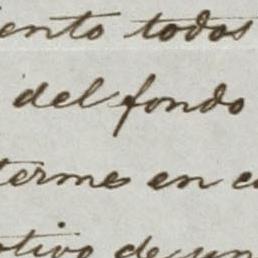 ento todos
del fondo
terme en c
otivo de un